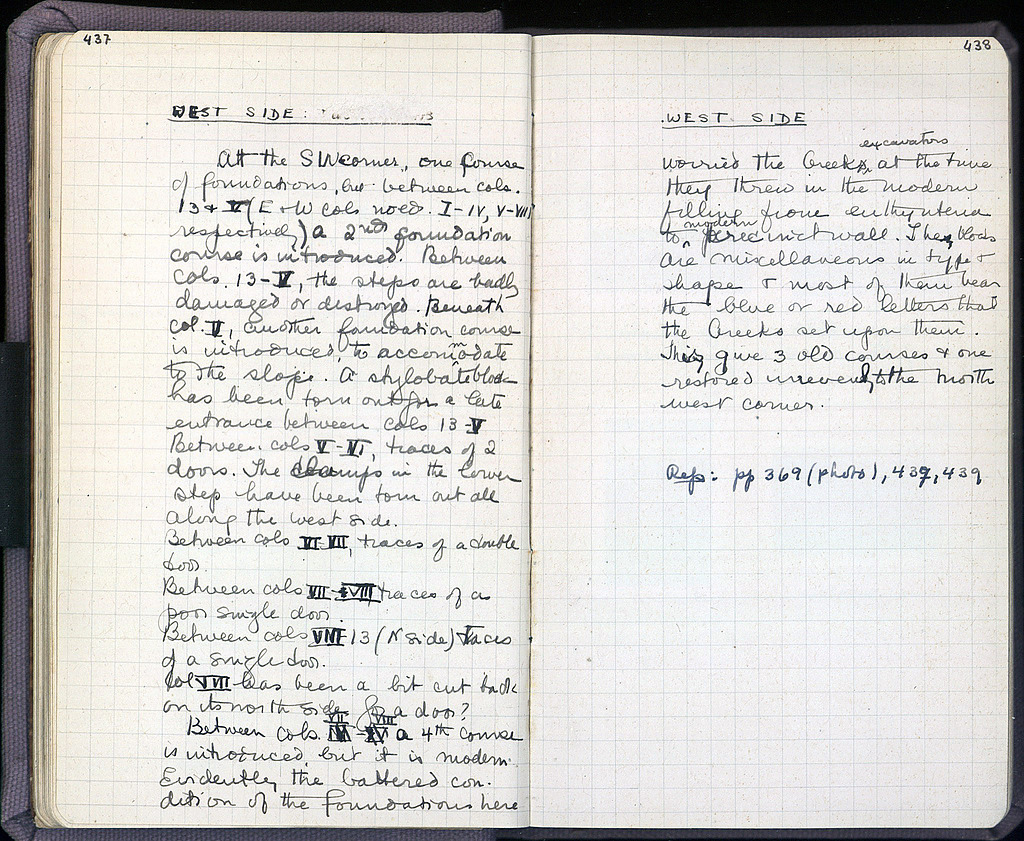 437
WEST SIDE:
At the SW corner, one course
of foundations, but between cols.
13 + V (E + W cols no'ed. I-IV, V-VIII
respectively) a 2nd foundation
course is introduced. Between
cols. 13-V, the steps are badly
damaged or destroyed. Beneath
col. V, another foundation course
is introduced, to accommodate
to the slope. A stylobate block
has been torn out for a late
entrance between cols 13-V
Between cols V-VI, traces of 2
doors. The clamps in the lower
step have been torn out all
along the west side.
Between cols VI-VII, traces of a double
door.
Between cols VII-VIII, traces of a
poor single door.
Between cols VIII-13 (N side) traces
of a single door.
Col VIII has been a bit cut back
on its north side for a door?
Between cols. VII-VIII a 4th course
is introduced, but it is modern.
Evidently, the battered con-
dition of the foundations here
438
WEST SIDE
worried the Greek excavators at the time
they threw in the modern
filling from euthynteria
to modern precinct wall. These blocks
are miscellaneous in type +
shape + most of them bear
the blue or red letters that
the Greeks set upon them.
This give 3 old courses + one
restored unevenly to the north
west corner.
Refs: pp 369 (photo), 437, 439